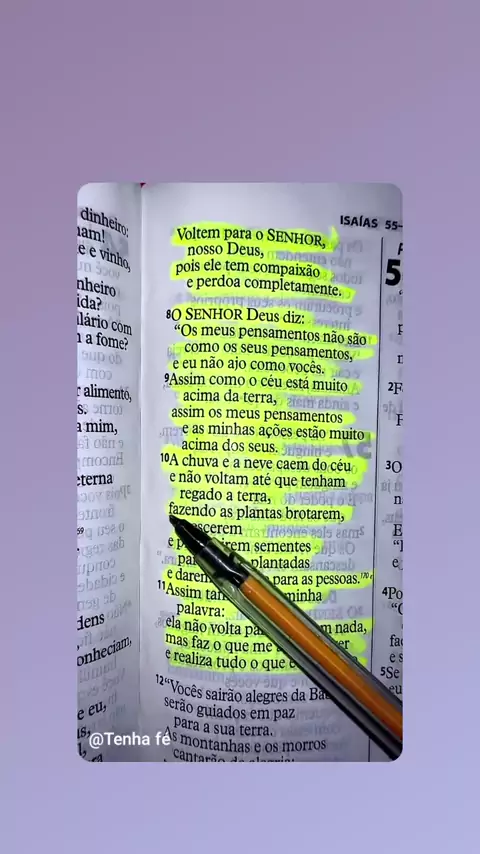 dinheiro:
e e vinho,
nheiro
ida?
lário com
a fome?
alimento,
s.
a mim,
eterna
59
dens
onheciam,
e eu,
ISAÍAS 55
Voltem para o SENHOR,
nosso Deus,
pois ele tem compaixão
e perdoa completamente.
8O SENHOR Deus diz:
“Os meus pensamentos não são
como os seus pensamentos,
e eu não ajo como vocês.
9Assim como o céu está muito
acima da terra,
assim os meus pensamentos
e as minhas ações estão muito
acima dos seus.
10A chuva e a neve caem do céu
e não voltam até que tenham
regado a terra,
fazendo as plantas brotarem,
escerem
e p rem sementes
par plantadas
e darem para as pessoas.170
11Assim tam minha
palavra:
ela não volta pa m nada,
mas faz o que me
e realiza tudo o que e
12“Vocês sairão alegres da Ba
serão guiados em paz
para a sua terra.
As montanhas e os morros
cantarão de alegria;
5
2F
3O
4Po
5Se
@Tenha fé